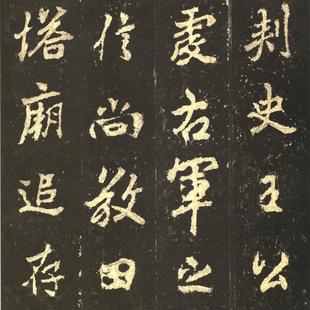 刺史王公
虔右軍之
信尚敬田
塔廟追存